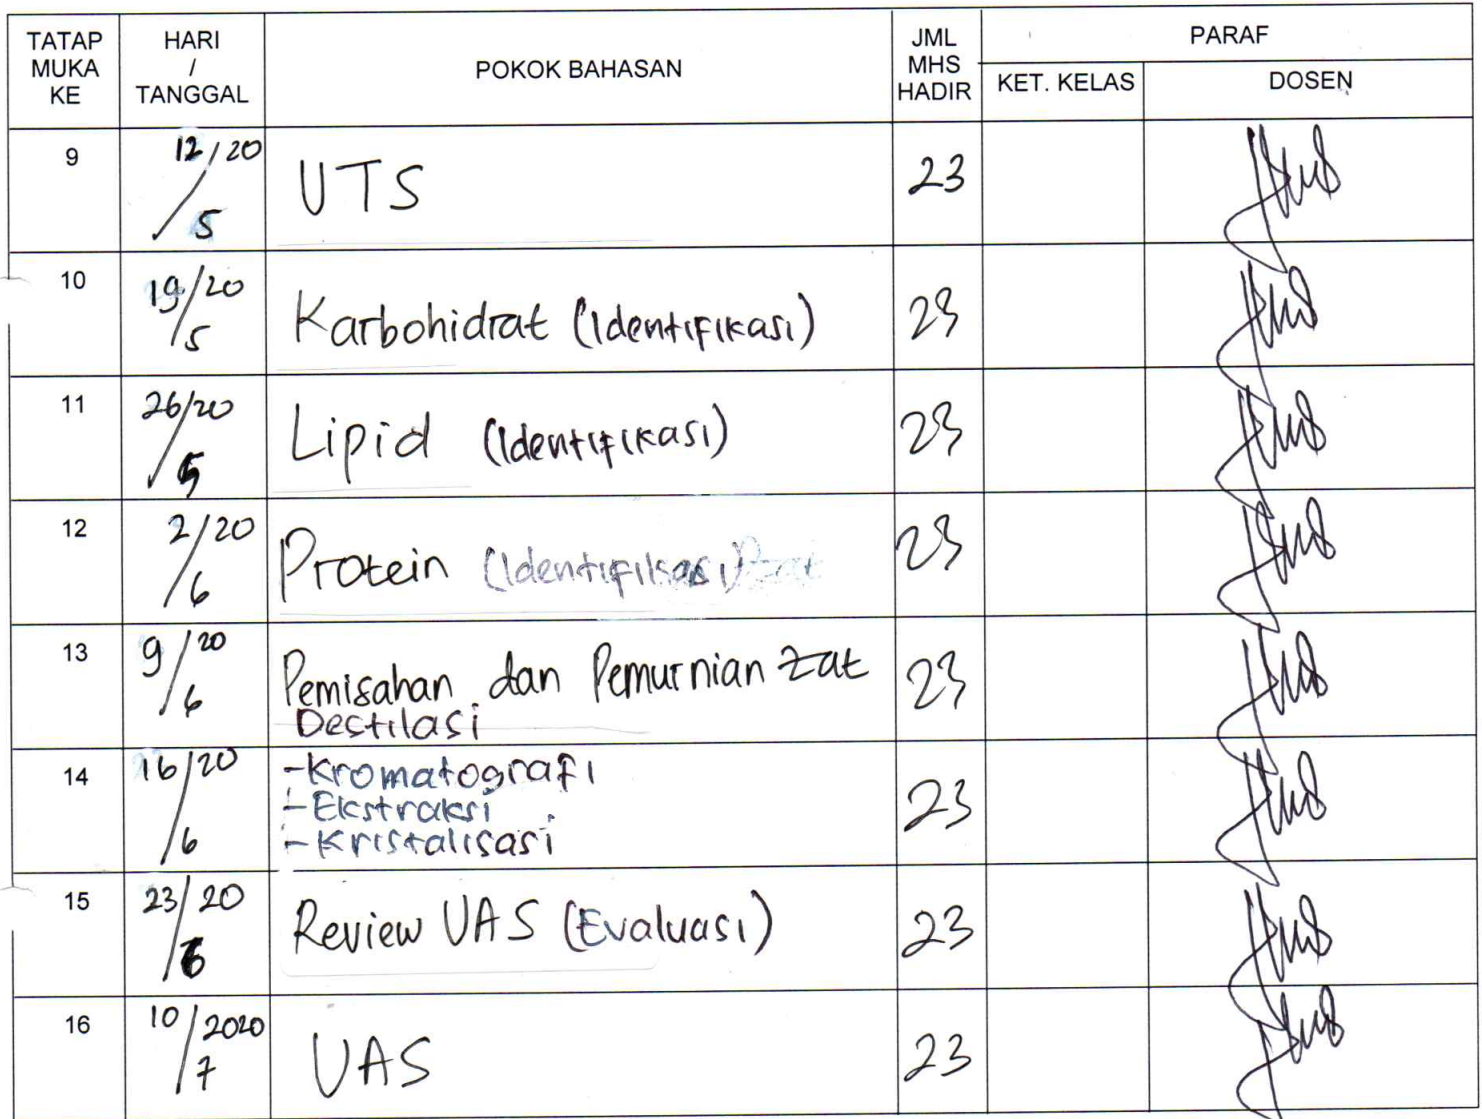 TATAP MUKA KE HARI / TANGGAL POKOK BAHASAN JML MHS HADIR PARAF
KET. KELAS DOSEN
9 12/5 20 UTS 23
10 19/5 20 Karbohidrat (Identifikasi) 23
11 26/5 20 Lipid (Identifikasi) 23
12 2/6 20 Protein (Identifikasi) 23
13 9/6 20 Pemisahan dan Pemurnian Zat 23
Destilasi
14 16/6 20 -Kromatografi 23
-Ekstraksi
-Kristalisasi
15 23/6 20 Review UAS (Evaluasi) 23
16 10/7 2020 UAS 23